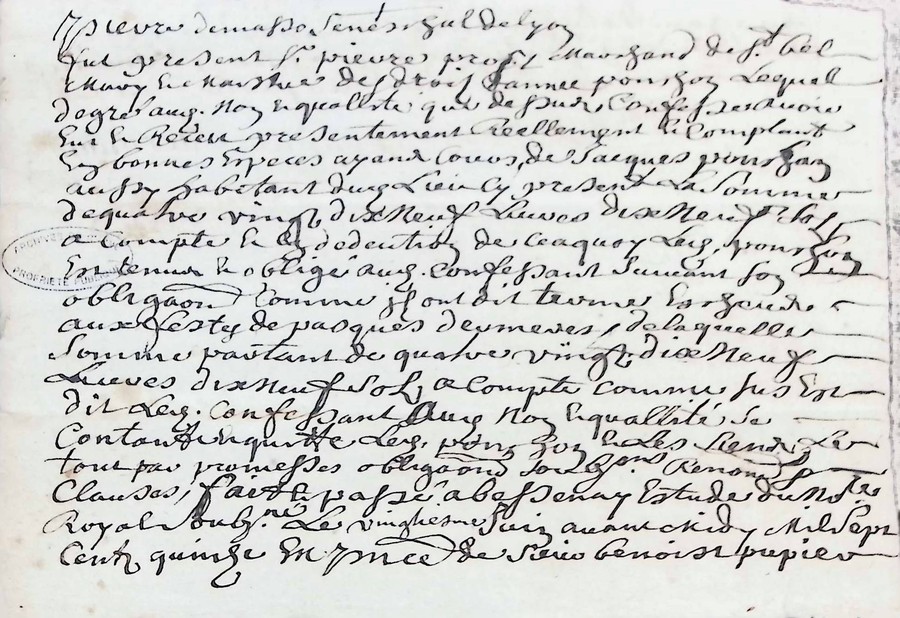 pierre demasso Seneschal de lyon
fut present Sr pierre prost Marchand de St
de droit d'annee ponchon Lequel
de gré aud. Nom En qualitte que dessus Confesse avoir
Eu et Receu presentement Reellement et Comptant
En bonnes Especes ayant Cours, de Jacques ponchon
aussy habitant dud Lieu Cy present La Somme
de quatre vingt dix Neuf Livres dix Neuf sols
a Compte et En deduction de ce a quoy Led, ponchon
Est tenu et obligé aud. Confessant Suivant Son
obliga͠on Comme ils ont dit terme Escheu
aux festes de pasques dernieres, de laquelle
Somme partant de quatre vingt dix Neuf
Livres dix Neuf Sols a Compte comme sus Est
dit Led. Confessant Aud Nom En qualité Se
Contante En quitte Led, ponchon et Les Siens, Le
tout par promesses obliga͠on Renon͠s
Clauses, fait et passé a bessenay Estude du No͠re
Royal Soubz.né Le vingtiesme Juin avant Midy Mil Sept
Centz quinze En p͠nce de Sieur benoist papier